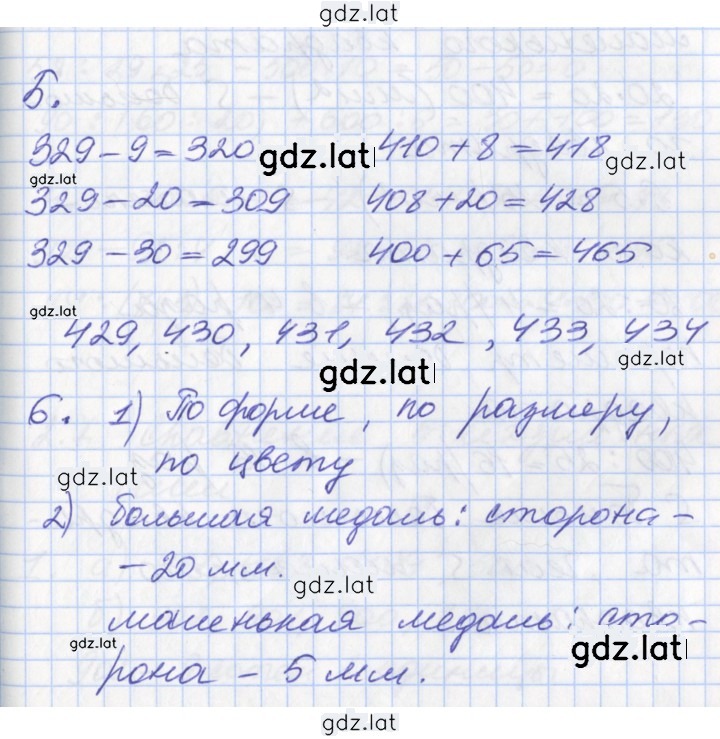 gdz.lat
Б.
329 - 9 = 320 gdz.lat 410 + 8 = 418 gdz.lat
gdz.lat
329 - 20 = 309 408 + 20 = 428
329 - 30 = 299 400 + 65 = 465
gdz.lat
429, 430, 431, 432, 433, 434
gdz.lat gdz.lat
6. 1) По форме, по размеру,
по цвету
gdz.lat
2) большая медаль: сторона -
- 20 мм.
gdz.lat
маленькая медаль: сто-
gdz.lat gdz.lat
рона - 5 мм.
gdz.lat